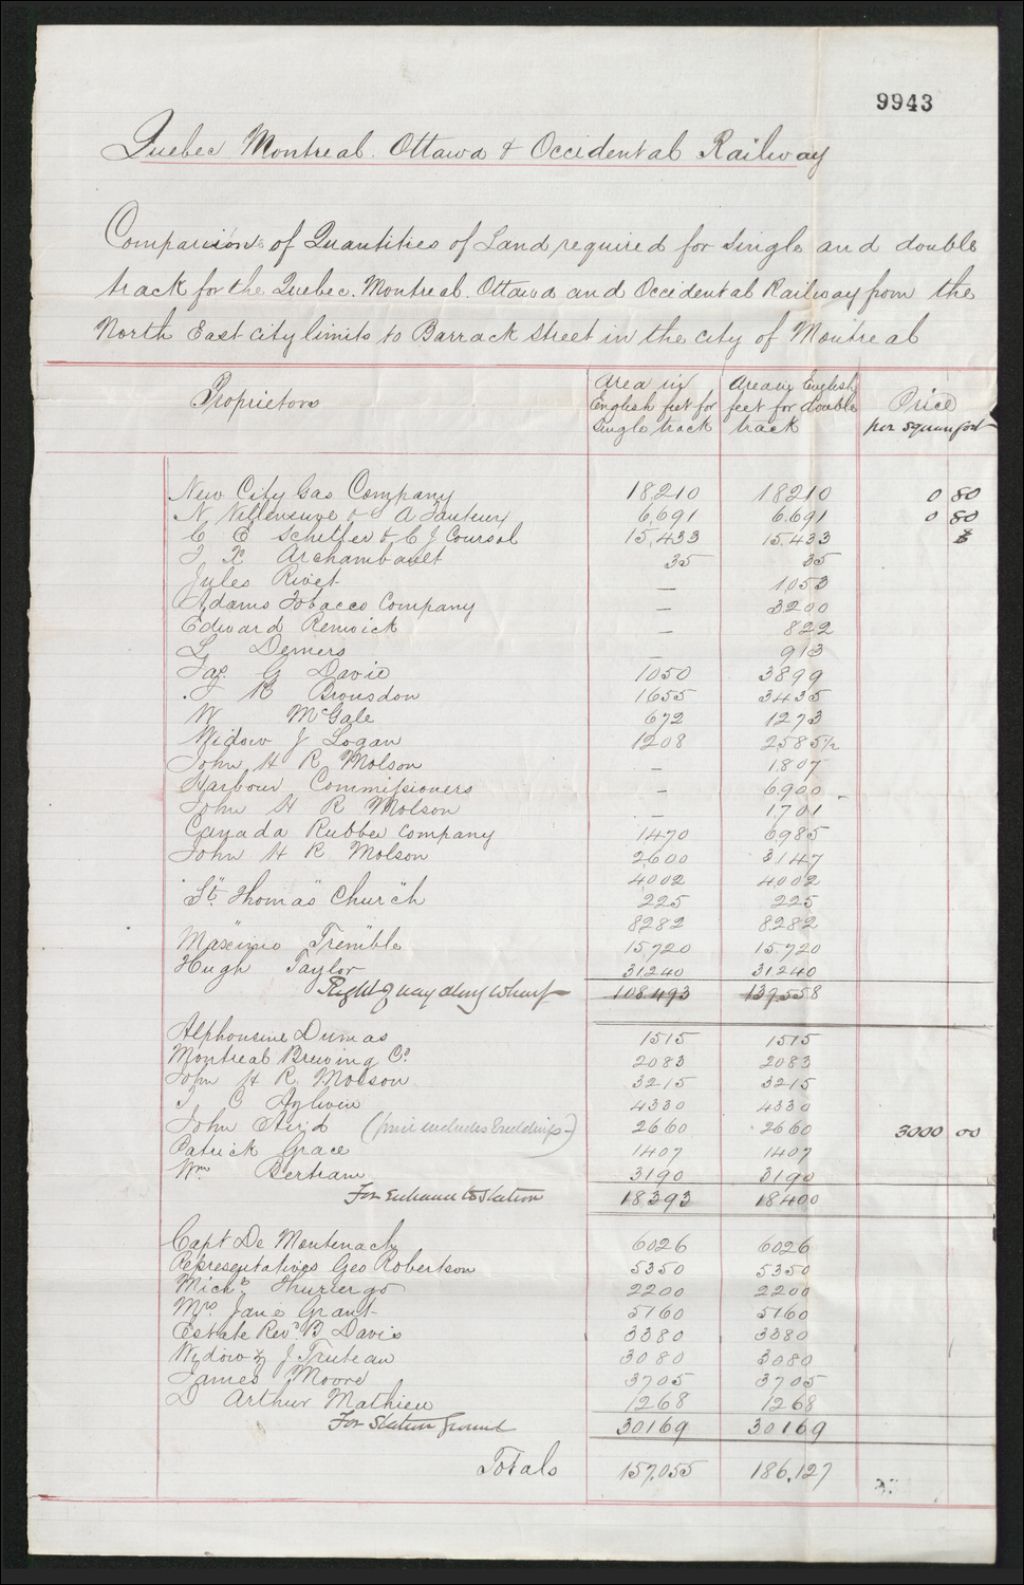 9943
Quebec Montreal. Ottawa & Occidental Railway
Comparisons of Quantities of Land required for single and double
track for the Quebec. Montreal. Ottawa and Occidental Railway from the
North East city limits to Barrack Street in the city of Montreal
Proprietors | Area in English feet for single track | Area in English feet for double track | Price per square foot
New City Gas Company 18,210 18210 0 80
N Villeneuve & A Fauteux 6,691 6.691 0 80
C E Schiller & C J Coursol 15,433 15,433
F X Archambault 35 35
Jules Rivet — 1,053
Adams Tobacco Company — 3200
Edward Renwick — 822
L Demers — 913
Jas. G Davie 1050 3899
J R Bronsdon 1655 3435
W McGale 672 1273
Widow J Logan 1208 2585½
John H R Molson — 1,807
Harbour Commissioners — 6,900
John H R Molson — 1,701
Canada Rubber Company 1470 6,985
John H R Molson 2600 3147
" " " 4002 4002
St. Thomas Church 225 225
" " " 8282 8282
Maximo Tremble 15,720 15,720
Hugh Taylor 31240 31240
Right of way along Wharf 108493 139,558
Alphonsine Dumas 1515 1515
Montreal Brewing Co. 2083 2083
John H R. Molson 3215 3215
T C Aylwin 4330 4330
John (price includes buildings) 2660 2660 3000 00
Patrick Grace 1407 1407
Wm Bertram 3190 3190
For Entrance to Station 18393 18400
Capt De Montenach 6026 6026
Representatives Geo Robertson 5350 5350
Mich. 2200 2200
Mrs. Jane Grant 5160 5160
Estate Revd. B Davis 3380 3380
Widow J Truteau 3080 3080
James Moore 3705 3705
D Arthur Mathieu 1268 1268
For Station Ground 30169 30169
Totals 157,055 186,127